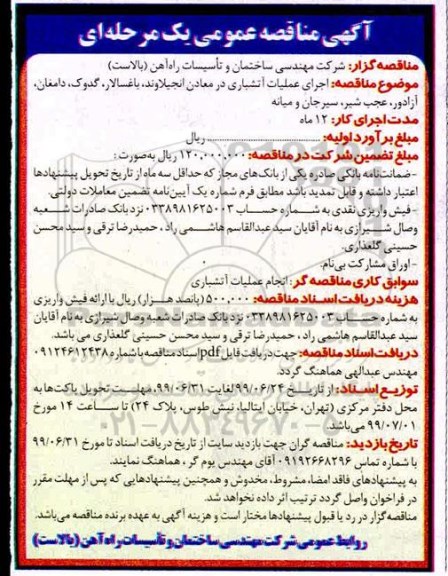 آگهی مناقصه عمومی یک مرحله‌ای
مناقصه گزار: شرکت مهندسی ساختمان و تأسیسات راه‌آهن (بالاست)
موضوع مناقصه: اجرای عملیات آتشباری در معادن انجیلاوند، باغسالار، گدوک، دامغان،
آزادور، عجب شیر، سیرجان و میانه
مدت اجرای کار: ۱۲ ماه
مبلغ برآورد اولیه: .................... ریال
مبلغ تضمین شرکت در مناقصه: ۱۲۰,۰۰۰,۰۰۰ ریال به‌صورت:
-ضمانت‌نامه بانکی صادره یکی از بانک‌های مجاز که حداقل سه ماه از تاریخ تحویل پیشنهادها
اعتبار داشته و قابل تمدید باشد مطابق فرم شماره یک آیین‌نامه تضمین معاملات دولتی.
-فیش واریزی نقدی به شماره حساب ۰۳۳۸۹۸۱۶۲۵۰۰۳ نزد بانک صادرات شعبه
وصال شیرازی به نام آقایان سید عبدالقاسم هاشمی راد، حمیدرضا ترقی و سید محسن
حسینی گلغذاری.
-اوراق مشارکت بی‌نام.
سوابق کاری مناقصه گر: انجام عملیات آتشباری
هزینه دریافت اسناد مناقصه: ۵۰۰,۰۰۰ (پانصد هزار) ریال با ارائه فیش واریزی
به شماره حساب ۰۳۳۸۹۸۱۶۲۵۰۰۳ نزد بانک صادرات شعبه وصال شیرازی به نام آقایان
سید عبدالقاسم هاشمی راد، حمیدرضا ترقی و سید محسن حسینی گلغذاری می باشد.
دریافت اسناد مناقصه: جهت دریافت فایل pdf اسناد مناقصه باشماره ۰۹۱۲۴۶۱۲۴۳۸
مهندس عبدالهی هماهنگ گردد.
توزیع اسناد: از تاریخ ۹۹/۰۶/۲۴ لغایت ۹۹/۰۶/۳۱، مهلت تحویل پاکت‌ها به
محل دفتر مرکزی (تهران، خیابان ایتالیا، نبش طوس، پلاک ۲۴) تا ساعت ۱۴ مورخ
۹۹/۰۷/۰۱ می‌باشد.
تاریخ بازدید: مناقصه گران جهت بازدید سایت از تاریخ دریافت اسناد تا مورخ ۹۹/۰۶/۳۱
با شماره تماس ۰۹۱۹۲۶۶۸۲۹۶ آقای مهندس یوم گر، هماهنگ نمایند.
به پیشنهادهای فاقد امضا، مشروط، مخدوش و همچنین پیشنهادهایی که پس از مهلت مقرر
در فراخوان واصل گردد ترتیب اثر داده نخواهد شد.
مناقصه گزار در رد یا قبول پیشنهادها مختار است و هزینه آگهی به عهده برنده مناقصه می‌باشد.
روابط عمومی شرکت مهندسی ساختمان و تأسیسات راه آهن (بالاست)